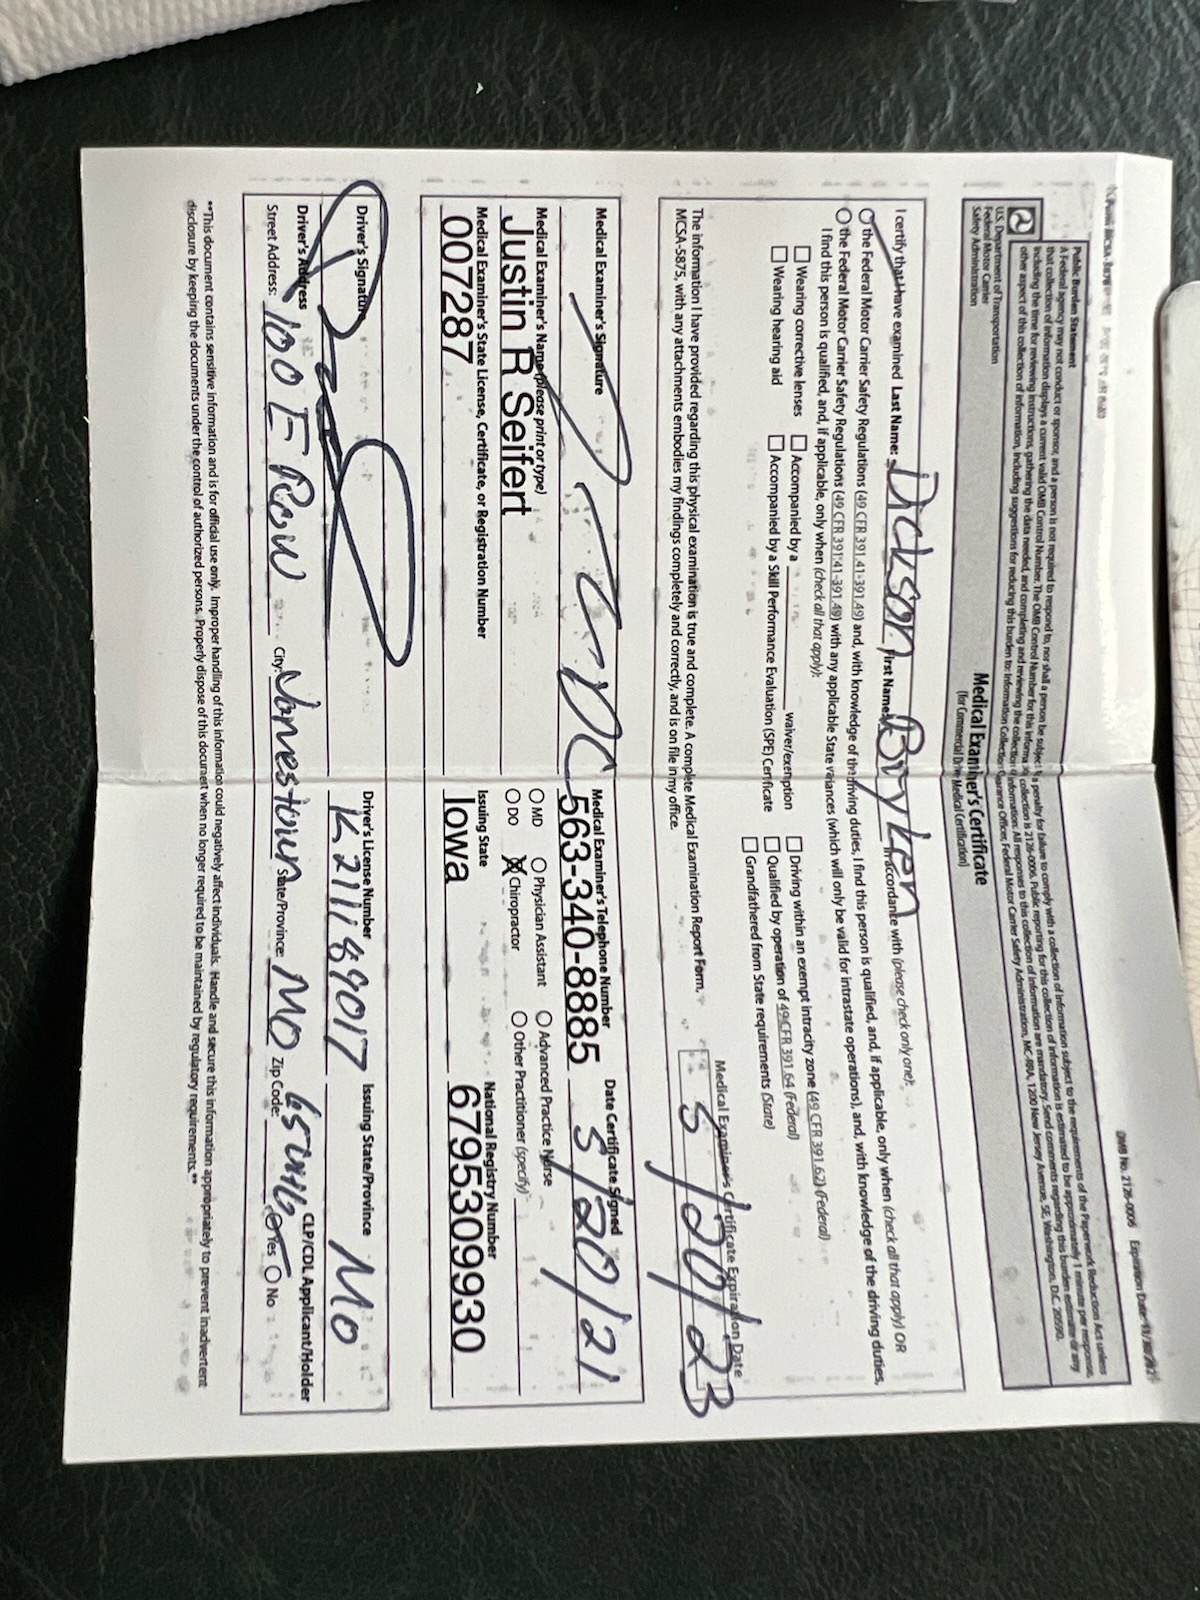 Form MCSA-5876
OMB No. 2126-0006 Expiration Date: 11/30/2021
Public Burden Statement
A Federal agency may not conduct or sponsor, and a person is not required to respond to, nor shall a person be subject to a penalty for failure to comply with a collection of information subject to the requirements of the Paperwork Reduction Act unless
that collection of information displays a current valid OMB Control Number. The OMB Control Number for this information collection is 2126-0006. Public reporting for this collection of information is estimated to be approximately 1 minute per response,
including the time for reviewing instructions, gathering the data needed, and completing and reviewing the collection of information. All responses to this collection of information are mandatory. Send comments regarding this burden estimate or any
other aspect of this collection of information, including suggestions for reducing this burden to: Information Collection Clearance Officer, Federal Motor Carrier Safety Administration, MC-RRA, 1200 New Jersey Avenue, SE, Washington, D.C. 20590.
U.S. Department of Transportation
Federal Motor Carrier
Safety Administration
Medical Examiner's Certificate
(for Commercial Driver Medical Certification)
I certify that I have examined Last Name: Dickson First Name: Bryken in accordance with (please check only one):
the Federal Motor Carrier Safety Regulations (49 CFR 391.41-391.49) and, with knowledge of the driving duties, I find this person is qualified, and, if applicable, only when (check all that apply) OR
the Federal Motor Carrier Safety Regulations (49 CFR 391.41-391.49) with any applicable State variances (which will only be valid for intrastate operations), and, with knowledge of the driving duties,
I find this person is qualified, and, if applicable, only when (check all that apply):
Wearing corrective lenses Accompanied by a waiver/exemption Driving within an exempt intracity zone (49 CFR 391.62) (Federal)
Wearing hearing aid Accompanied by a Skill Performance Evaluation (SPE) Certificate Qualified by operation of 49 CFR 391.64 (Federal)
Grandfathered from State requirements (State)
The information I have provided regarding this physical examination is true and complete. A complete Medical Examination Report Form,
MCSA-5875, with any attachments embodies my findings completely and correctly, and is on file in my office.
Medical Examiner's Certificate Expiration Date
5/20/23
Medical Examiner's Signature Medical Examiner's Telephone Number Date Certificate Signed
DC 563-340-8885 5/20/21
Medical Examiner's Name (please print or type) MD Physician Assistant Advanced Practice Nurse
Justin R Seifert DO Chiropractor Other Practitioner (specify)
Medical Examiner's State License, Certificate, or Registration Number Issuing State National Registry Number
007287 Iowa 6795309930
Driver's Signature Driver's License Number Issuing State/Province
MO
Driver's Address CLP/CDL Applicant/Holder
Street Address: 100 E Row City: Jonestown State/Province: MO Zip Code: Yes No
**This document contains sensitive information and is for official use only. Improper handling of this information could negatively affect individuals. Handle and secure this information appropriately to prevent inadvertent
disclosure by keeping the documents under the control of authorized persons. Properly dispose of this document when no longer required to be maintained by regulatory requirements.**